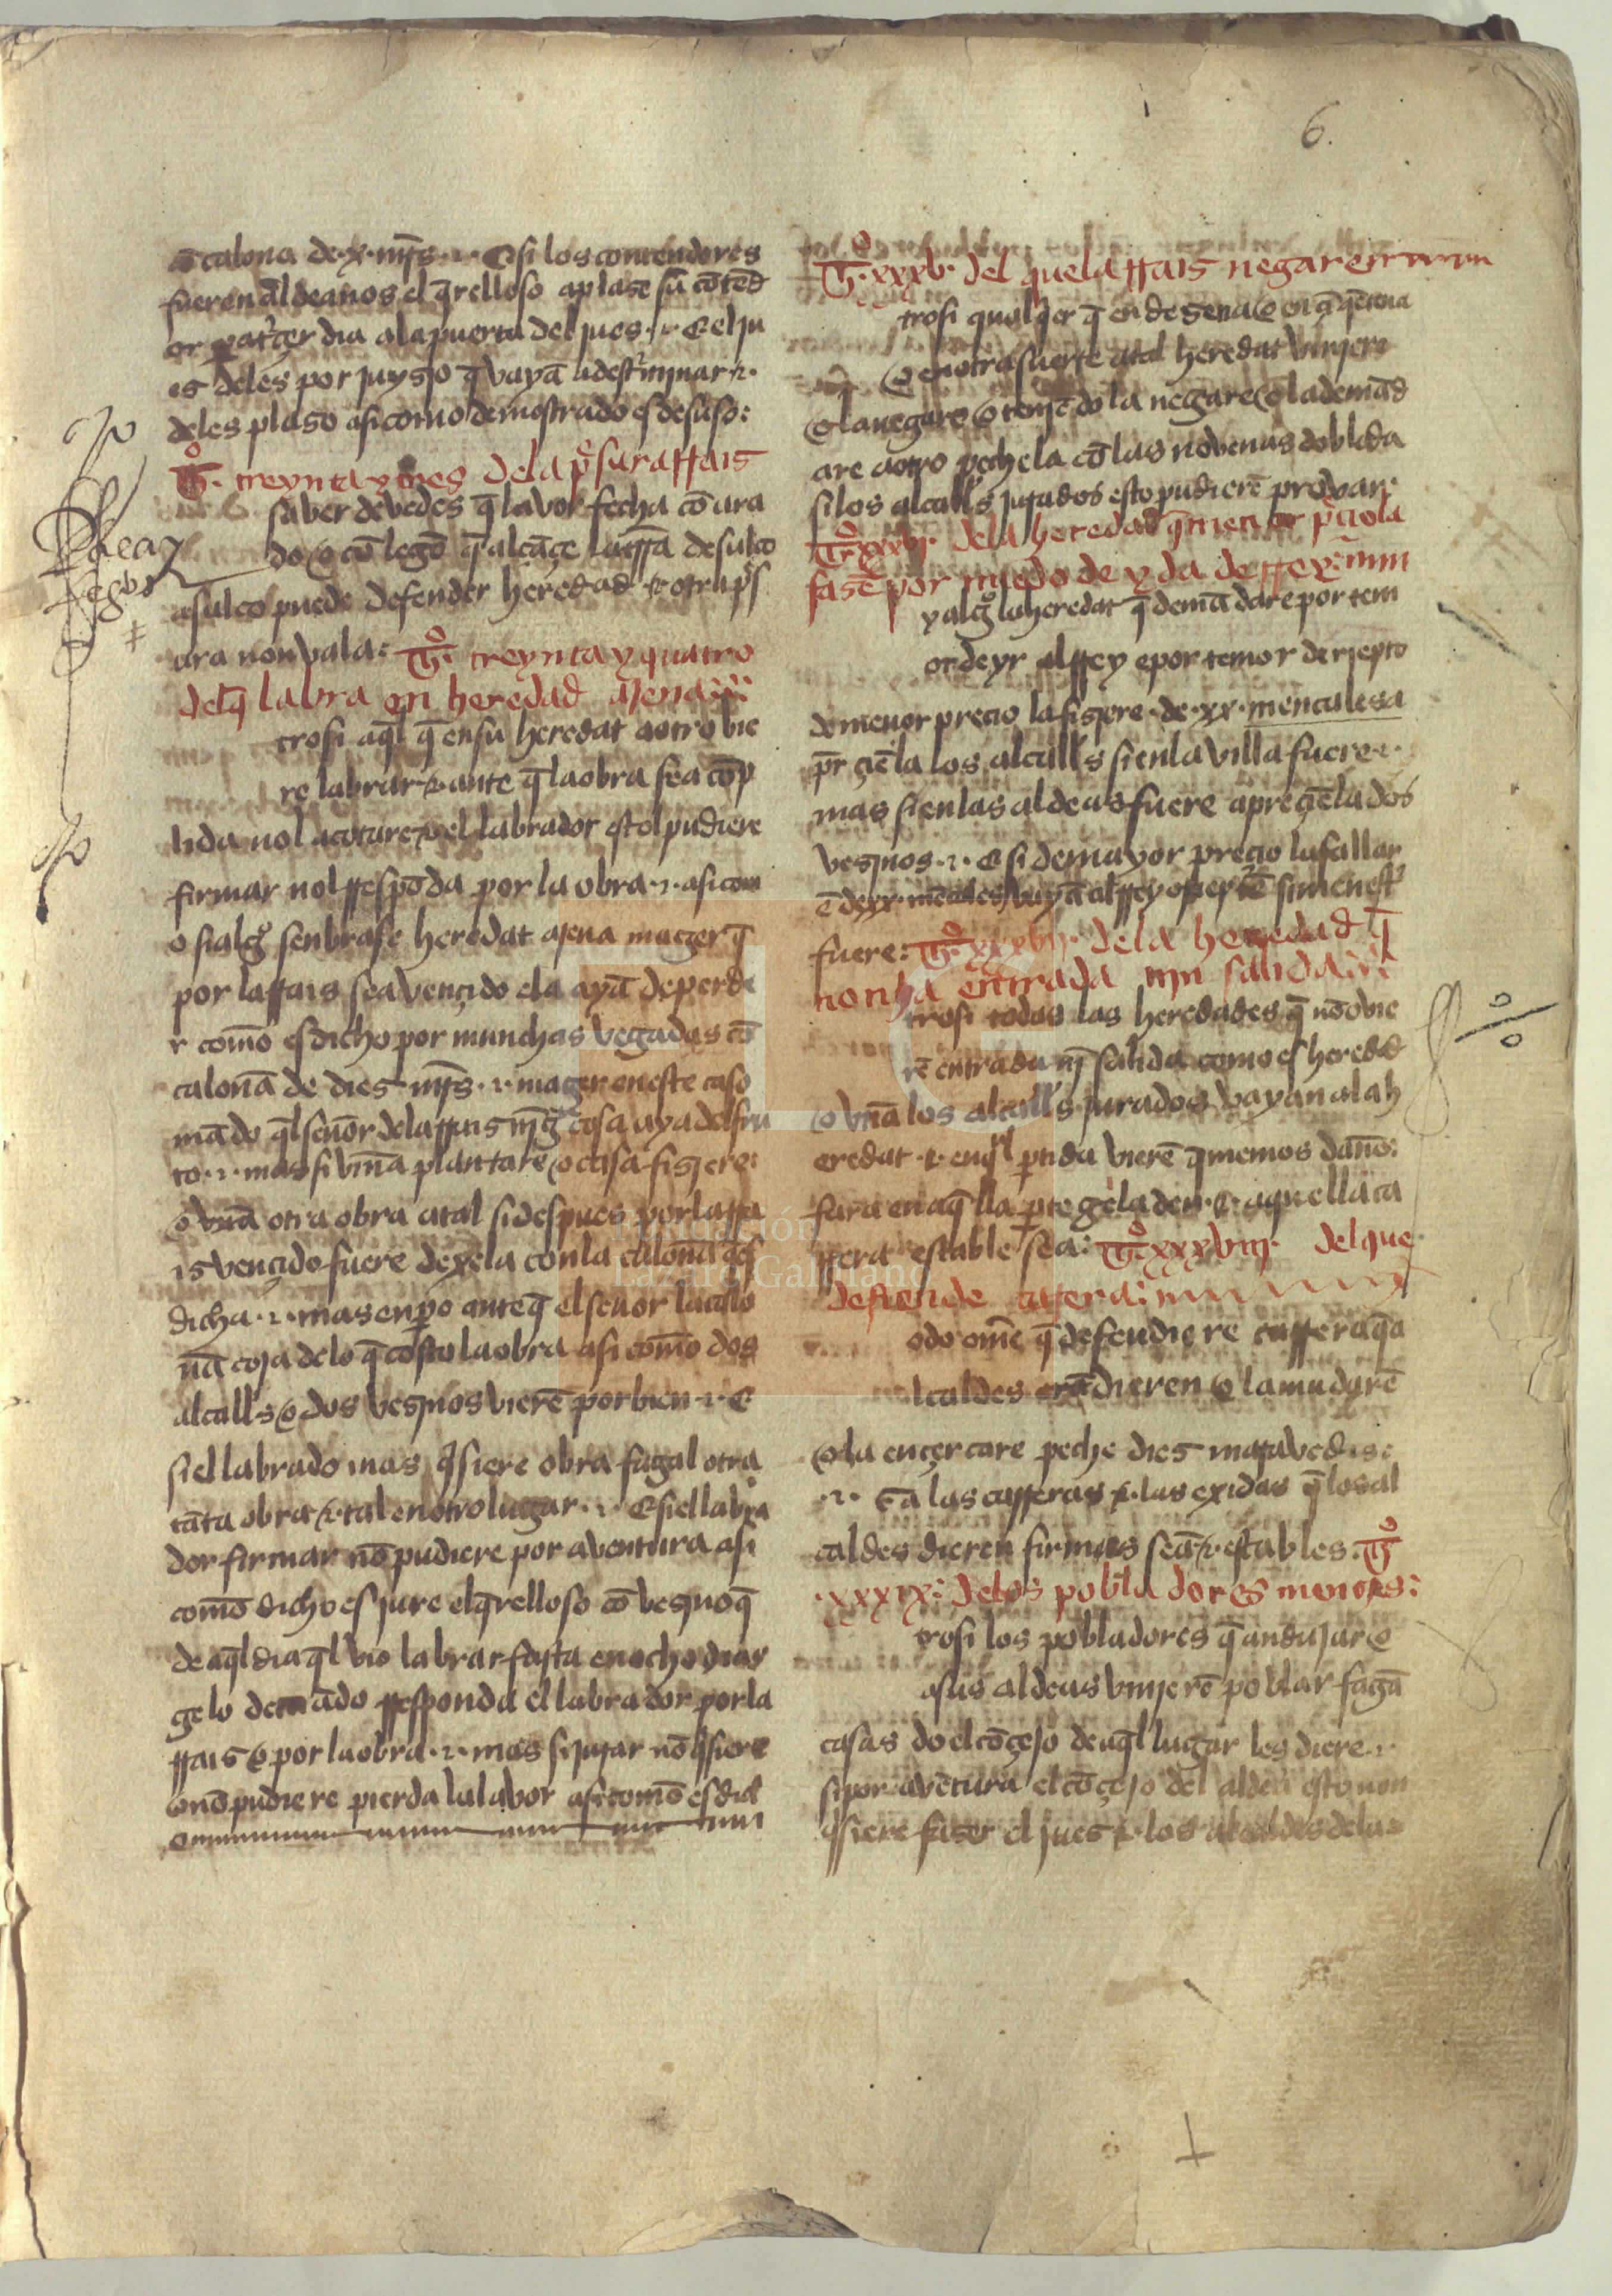 6
cō calona de .x. mr̄s .τ. E si los contendores
fueren aldeanos el q̄relloso aplase su cōtēd
or para terçer dia ala puerta del jues .τ. E el ju
es deles por juysio q̄ vayā a determjnar .τ.
deles plaso asi como demostrado es desuso:
Tº. treynta y tres dela p̃sura rrais
saber devedes q̄ lavor fecha cō ara
do o cō legō q̄ alcāçe la rrā de sulco
a sulco puede defender heredad τ otra p̃s
ura non vala: Tº. treynta y quatro
del q̄ labra en heredad ajena
trosi aq̄l q̄ en su heredat a otro vie
re labrar τ ante q̄ la obra sea cōp
lida nol acotare τ el labrador estol pudiere
firmar nol rrespōda por la obra .τ. asi com
o si algº senbrase heredat ajena mager q̄
por la rrais sea vençido ela ayā de perde
r como es dicho por munchas vegadas cō
calonā de dies mr̄s .τ. mager en este caso
mādo q̄l señor dela rrais njg̃ cosa aya del fru
to .τ. mas si viñā plantare o casa fisjere:
o vnā otra obra atal si despues por la rra
is vençido fuere dexela con la calonā q̄ es
dicha .τ. mas enpo ante q̄ el señor la
nā coja delo q̄ costo la obra asi como dos
alcall's o dos vesjnos vierē por bien .τ. E
si el labrado mas q̄siere obra fagal otra
tāta obra τ tal en otro lugar .τ. E si el labra
dor firmar nō pudiere por aventura asi
como dicho es jure el q̄relloso cō vesjno q̄
de aq̄l dia q̄l vio labrar fasta en ocho dias
gelo demādo rresponda el labrador por la
rrais o por la obra .τ. mas si jurar nō q̄siere
o nō pudiere pierda la lavor asi como es dich
o
Tº. xxxv. del que la rrais negare
trosi qualq̄er q̄ en
o en otra suerte atal heredat vinjere
o la negare o tenjēdo la negare o la demād
are a otro peche la cō las novenas doblada
si los alcall's jurados esto pudierē provar.
Tº. xxxvj. dela heredad q̄ menor p̃çio la
fasē por mjedo de yda de rrey
y algº la heredat q̄ demādare por tem
or de yr al rrey e por temor de rjepto
de menor preçio la fisjere .de .xx. mencales a
prēçiēla los alcall's si en la villa fuere .τ.
mas si en las aldeas fuere apreçiēla dos
vesjnos .τ. E si de mayor preçio la fallar
ē de xx. mēcales vayā al rrey si menest̃
fuere: Tº. xxxvij. dela heredad q̄
non ha entrada njn salida
trosi todas las heredades q̄ nō ovie
rē entrada nj̄ salida como es heredad
o vnā los alcall's jurados vayan ala h
eredat .τ. en q̄l p̄tida vierē q̄ menos daño:
fara en aq̄lla p̄te gela den .τ. aquella ca
rrera estable sea: Tº. xxxviij. del que
defiende carrera:
odo ome q̄ defendiere carrera q̄ a
lcaldes dieren o la mudarē
o la ençercare peche dies maravedis:
.τ. las carreras τ las exidas q̄ los al
caldes dieren firmes seā τ estables. Tº
.xxxix: delos pobladores menores:
trosi los pobladores q̄ andujar o
a sus aldeas vinjerē poblar fagā
casas do el cōçejo de aq̄l lugar les diere .τ.
si por avētura el cōçejo del aldea esto non
q̄siere faser el jues τ los alcaldes delas